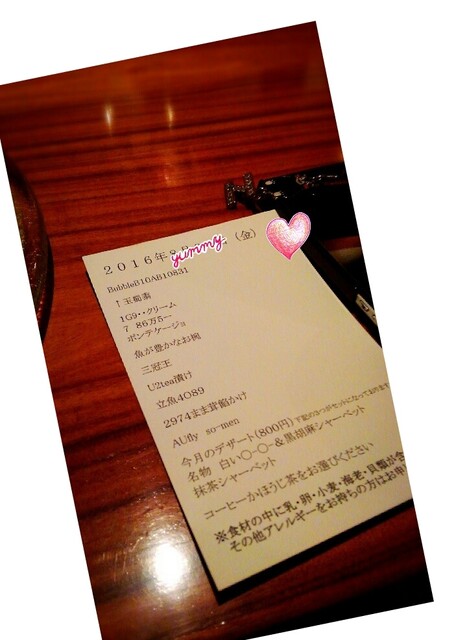 2016年8月 yummy (金)
BubbleB16AB10831
↑玉蜀黍
1G9・・クリーム
7 86万5--
ポンテケージョ
魚が豊かなお椀
三冠王
U2tea漬け
立魚4089
2974まま茸餡かけ
AUfly so-men
今月のデザート(800円)
名物 白い〇-〇-&黒胡麻シャーベット
抹茶シャーベット
コーヒーかほうじ茶をお選びください
※食材の中に乳・卵・小麦・海老・貝類が含
その他アレルギーをお持ちの方はお申